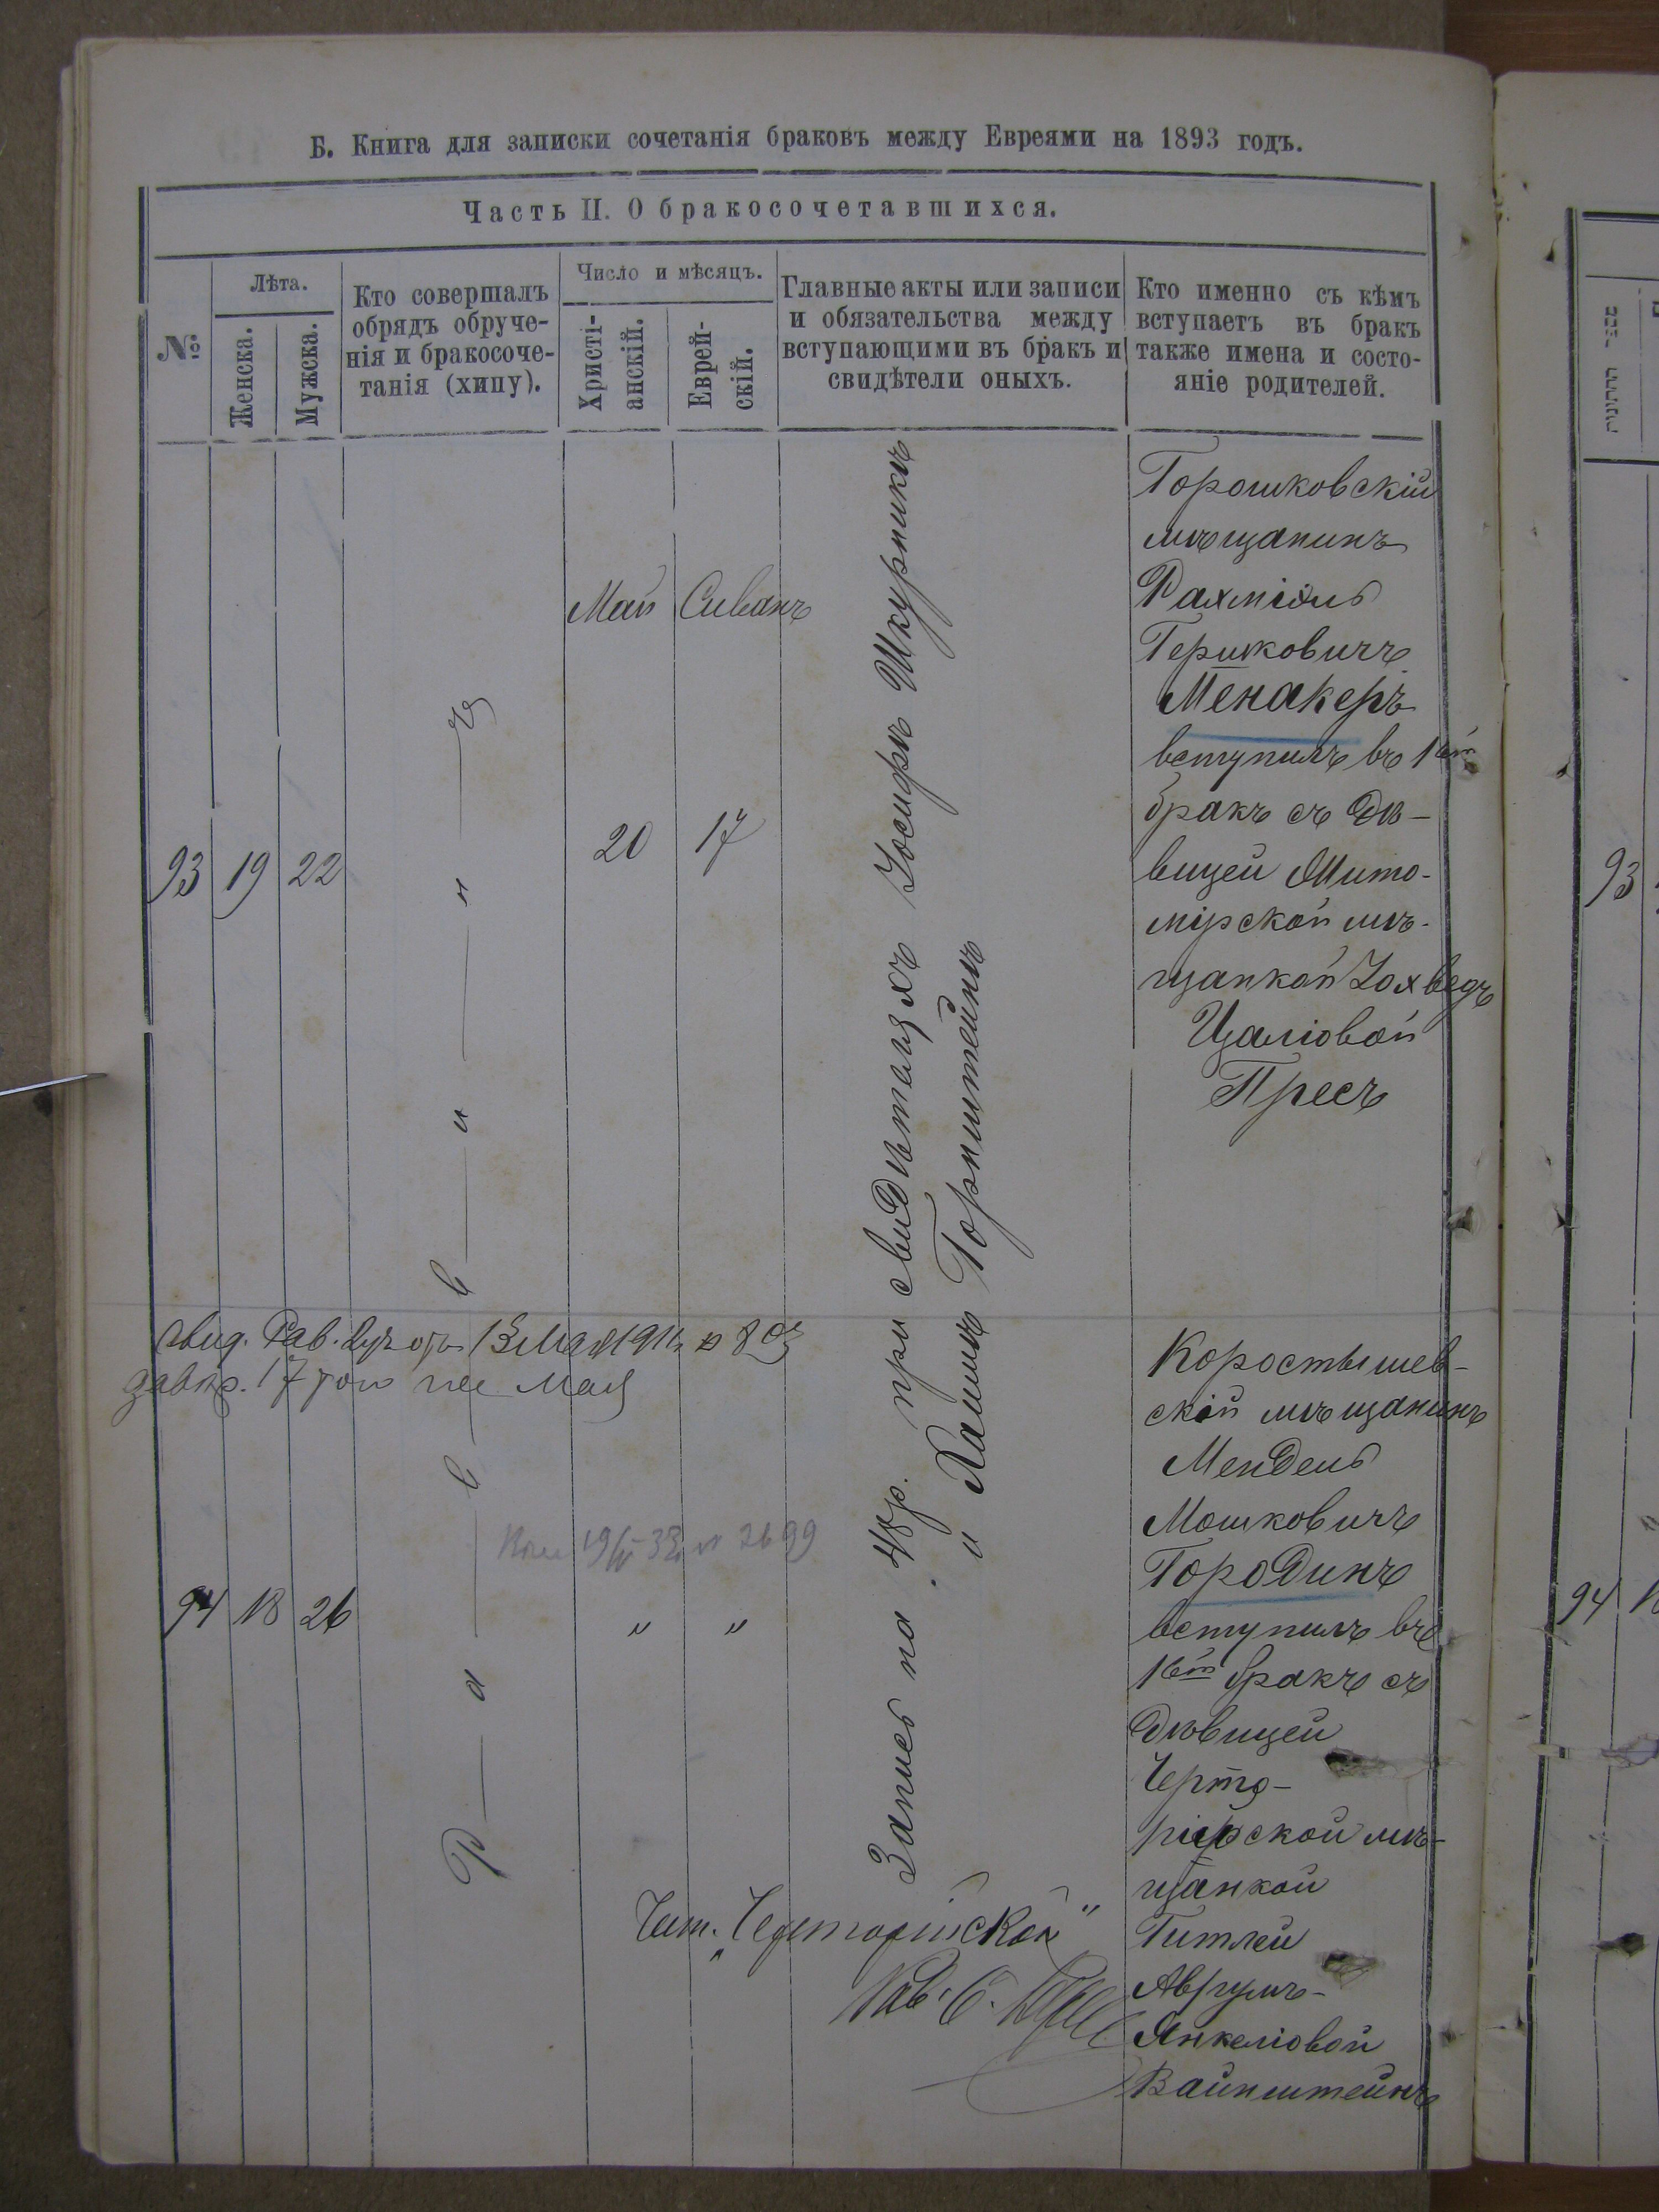 Б. Книга для записки сочетанія браковъ между Евреями на 1893 годъ.
Часть II. О бракосочетавшихся.
№
Лѣта.
Женска.
Мужска.
Кто совершалъ
обрядъ обруче-
нія и бракосоче-
танія (хипу).
Число и мѣсяцъ.
Христі-
анскій.
Еврей-
скій.
Главные акты или записи
и обязательства между
вступающими въ бракъ и
свидѣтели оныхъ.
Кто именно съ кѣмъ
вступаетъ въ бракъ
также имена и состо-
яніе родителей.
Май Сиванъ
93 19 22 20 17
Р а в в и н ъ
Запись на 48 р. при свидѣтеляхъ Іосифъ Шкурникъ
и Хаимъ Горнштейнъ
Горошковскій
мѣщанинъ
Рахміэль
Гершковичъ
Менакеръ
вступилъ въ 1вый
бракъ съ дѣ-
вицей Жито-
мірской мѣ-
щанкой Іохведъ
Цаліовой
Пресъ
свид. Рав.
17 того же Мая
94 18 26 " "
2699
Коростышев-
скій мѣщанинъ
Мендель
Мошковичъ
Городинъ
вступилъ въ
1вый бракъ съ
дѣвицей
Черто-
рійской мѣ-
щанкой
Гитлей
Аврумъ-
Янкеліовой
Вайнштейнъ
Чит. „Черторійской"
Рав.
93
94